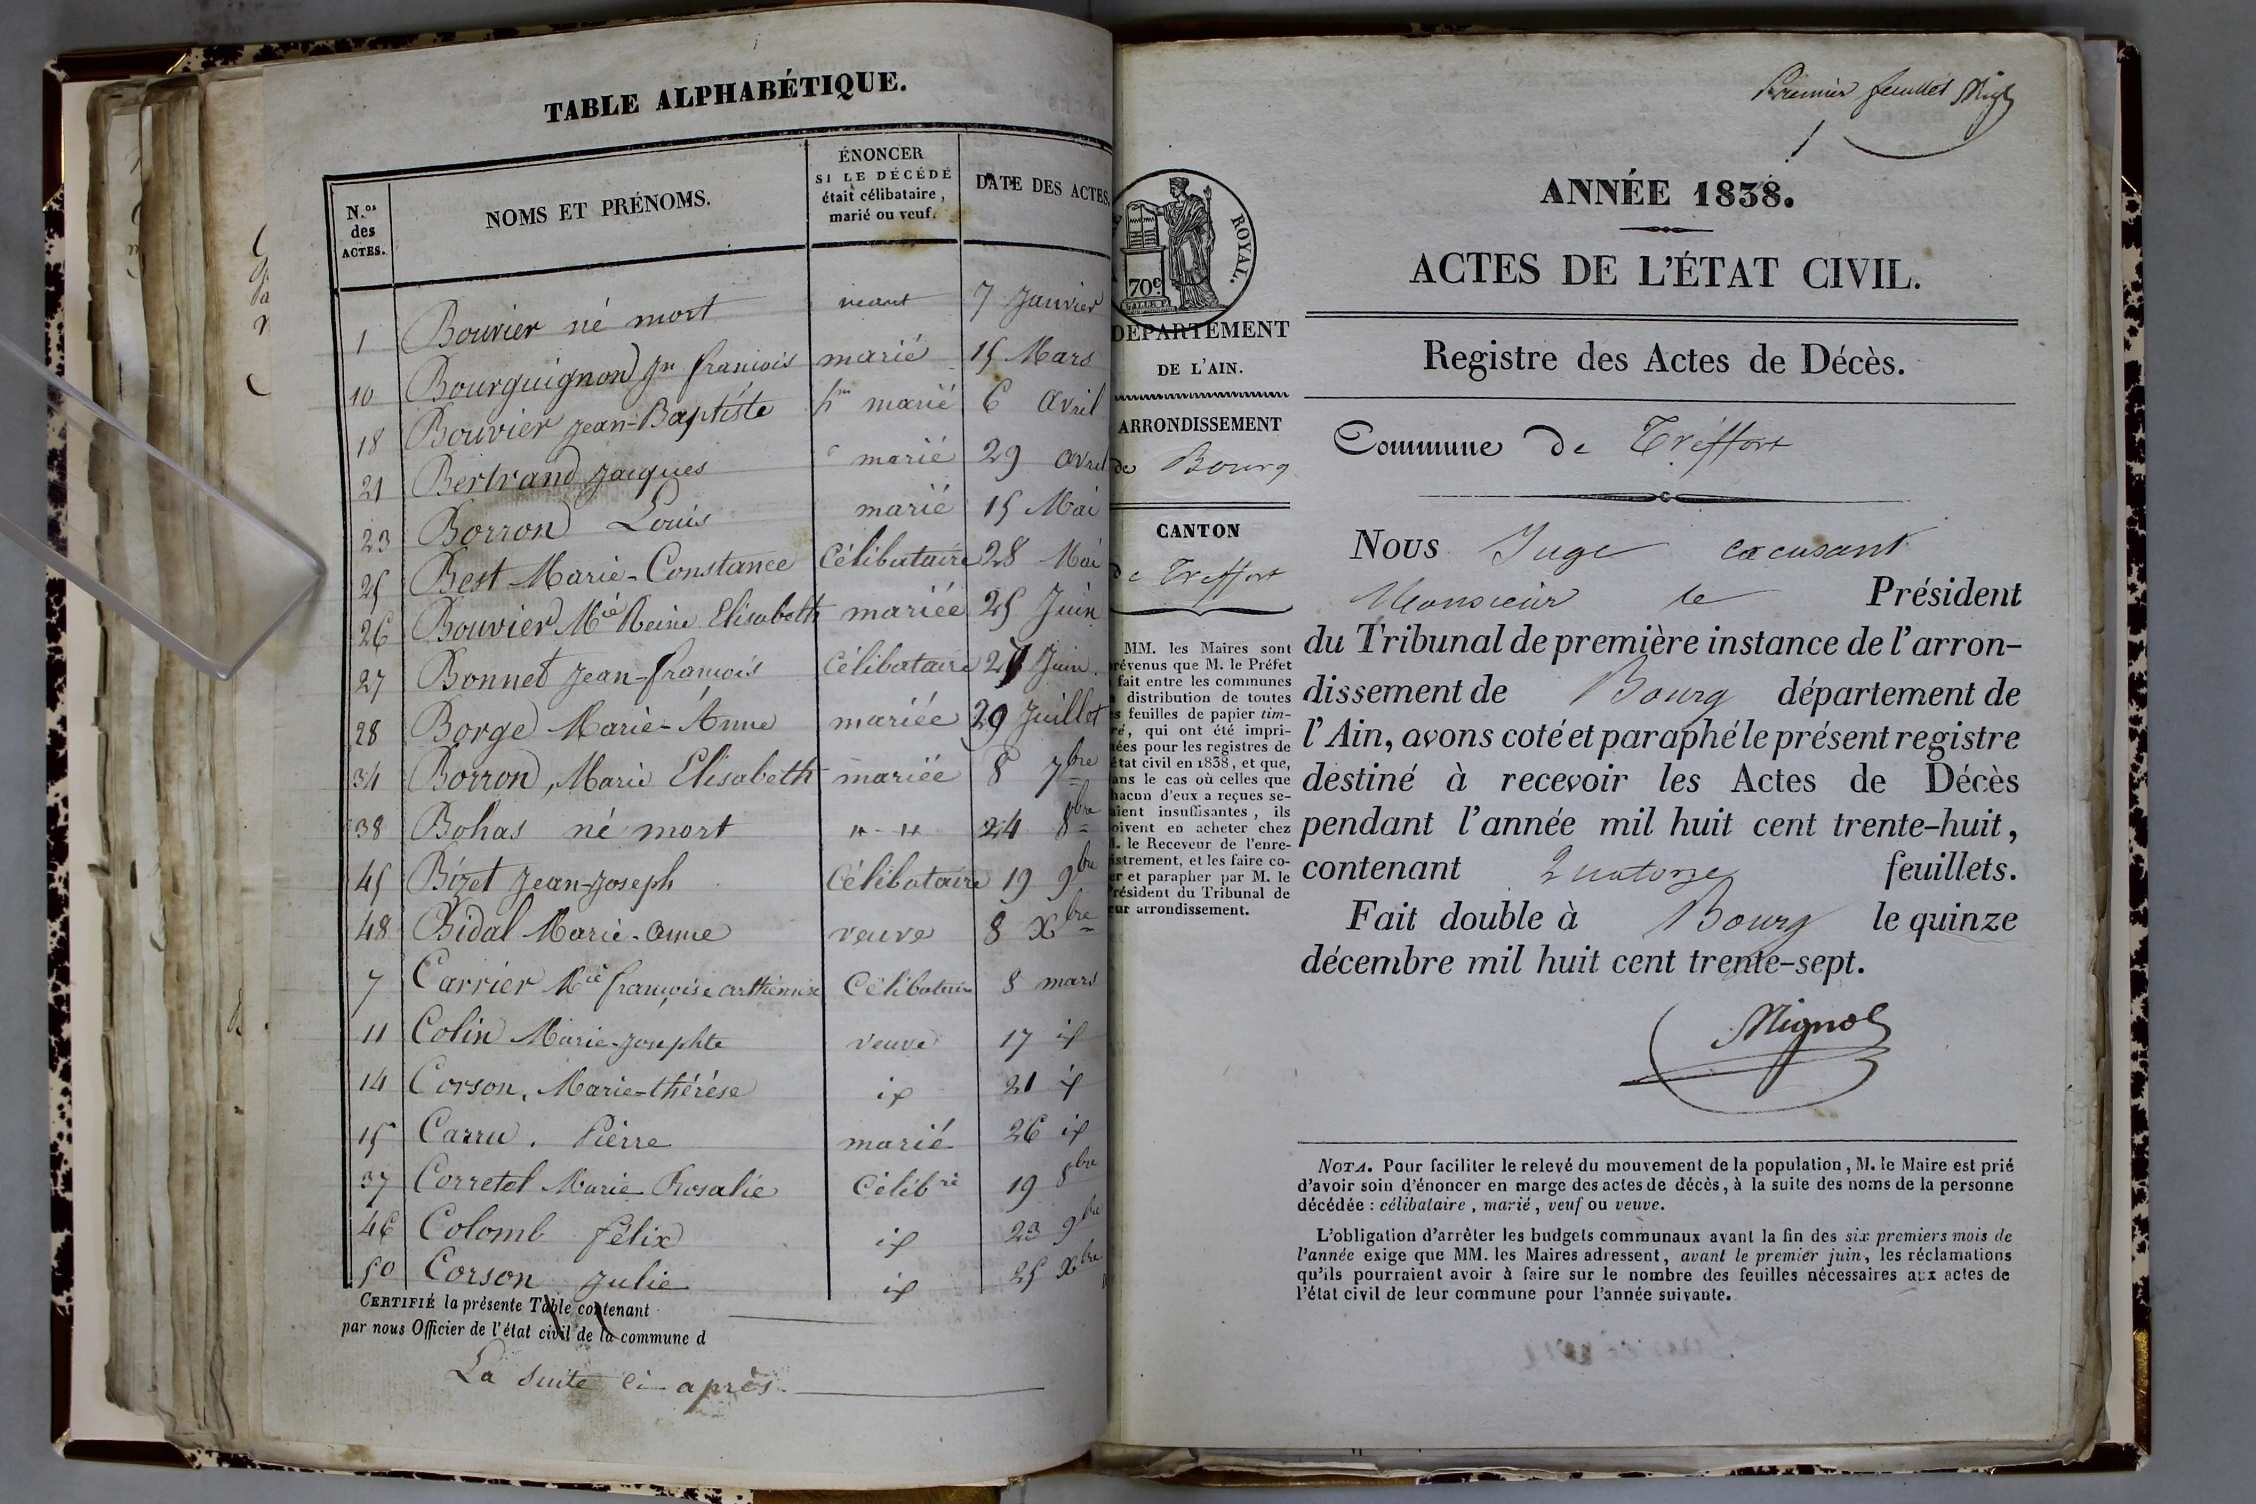 TABLE ALPHABÉTIQUE.
N.os des ACTES.
NOMS ET PRÉNOMS.
ÉNONCER
SI LE DÉCÉDÉ
était célibataire,
marié ou veuf.
DATE DES ACTES.
1 Bouvier né mort néant 7 Janvier
10 Bourguignon Jn francois marié 15 Mars
18 Bouvier Jean-Baptiste marié 6 avril
21 Bertrand Jacques marié 29 avril
23 Borron Louis marié 15 Mai
25 Best Marie-Constance Célibataire 28 Mai
26 Bouvier Mie Reine Elisabeth mariée 25 Juin
27 Bonnet Jean-francois Célibataire 27 Juin
28 Borge Marie-Anne mariée 29 Juillet
34 Borron, Marie Elisabeth mariée 8 7bre
38 Bohas né mort 24 8bre
45 Bizet Jean-Joseph Célibataire 19 9bre
48 Bidal Marie-anne veuve 8 Xbre
7 Carrier Mie françoise Célibataire 8 mars
11 Colin Marie-Josephte veuve 17 id
14 Corson, Marie-thérèse id 21 id
15 Carru. Pierre marié 26 id
37 Corretel Marie Rosalie Célibre 19 8bre
46 Colomb félix id 23 9bre
50 Corson Julie id 25 Xbre
CERTIFIÉ la présente Table contenant
par nous Officier de l'état civil de la commune d
La suite ci-après
Premier feuillet
1
ANNÉE 1838.
ACTES DE L'ÉTAT CIVIL.
ROYAL.
70c.
DÉPARTEMENT
DE L'AIN.
ARRONDISSEMENT
de Bourg
CANTON
de Treffort
MM. les Maires sont
prévenus que M. le Préfet
fait entre les communes
distribution de toutes
feuilles de papier tim-
bré, qui ont été impri-
mées pour les registres de
état civil en 1838, et que,
dans le cas où celles que
chacun d'eux a reçues se-
raient insuffisantes, ils
doivent en acheter chez
M. le Receveur de l'enre-
gistrement, et les faire co-
ter et parapher par M. le
Président du Tribunal de
leur arrondissement.
Registre des Actes de Décès.
Commune de Tréffort
Nous Juge excusant
Monsieur le Président
du Tribunal de première instance de l'arron-
dissement de Bourg département de
l'Ain, avons coté et paraphé le présent registre
destiné à recevoir les Actes de Décès
pendant l'année mil huit cent trente-huit,
contenant Quatorze feuillets.
Fait double à Bourg le quinze
décembre mil huit cent trente-sept.
NOTA. Pour faciliter le relevé du mouvement de la population, M. le Maire est prié
d'avoir soin d'énoncer en marge des actes de décès, à la suite des noms de la personne
décédée : célibataire, marié, veuf ou veuve.
L'obligation d'arrêter les budgets communaux avant la fin des six premiers mois de
l'année exige que MM. les Maires adressent, avant le premier juin, les réclamations
qu'ils pourraient avoir à faire sur le nombre des feuilles nécessaires aux actes de
l'état civil de leur commune pour l'année suivante.